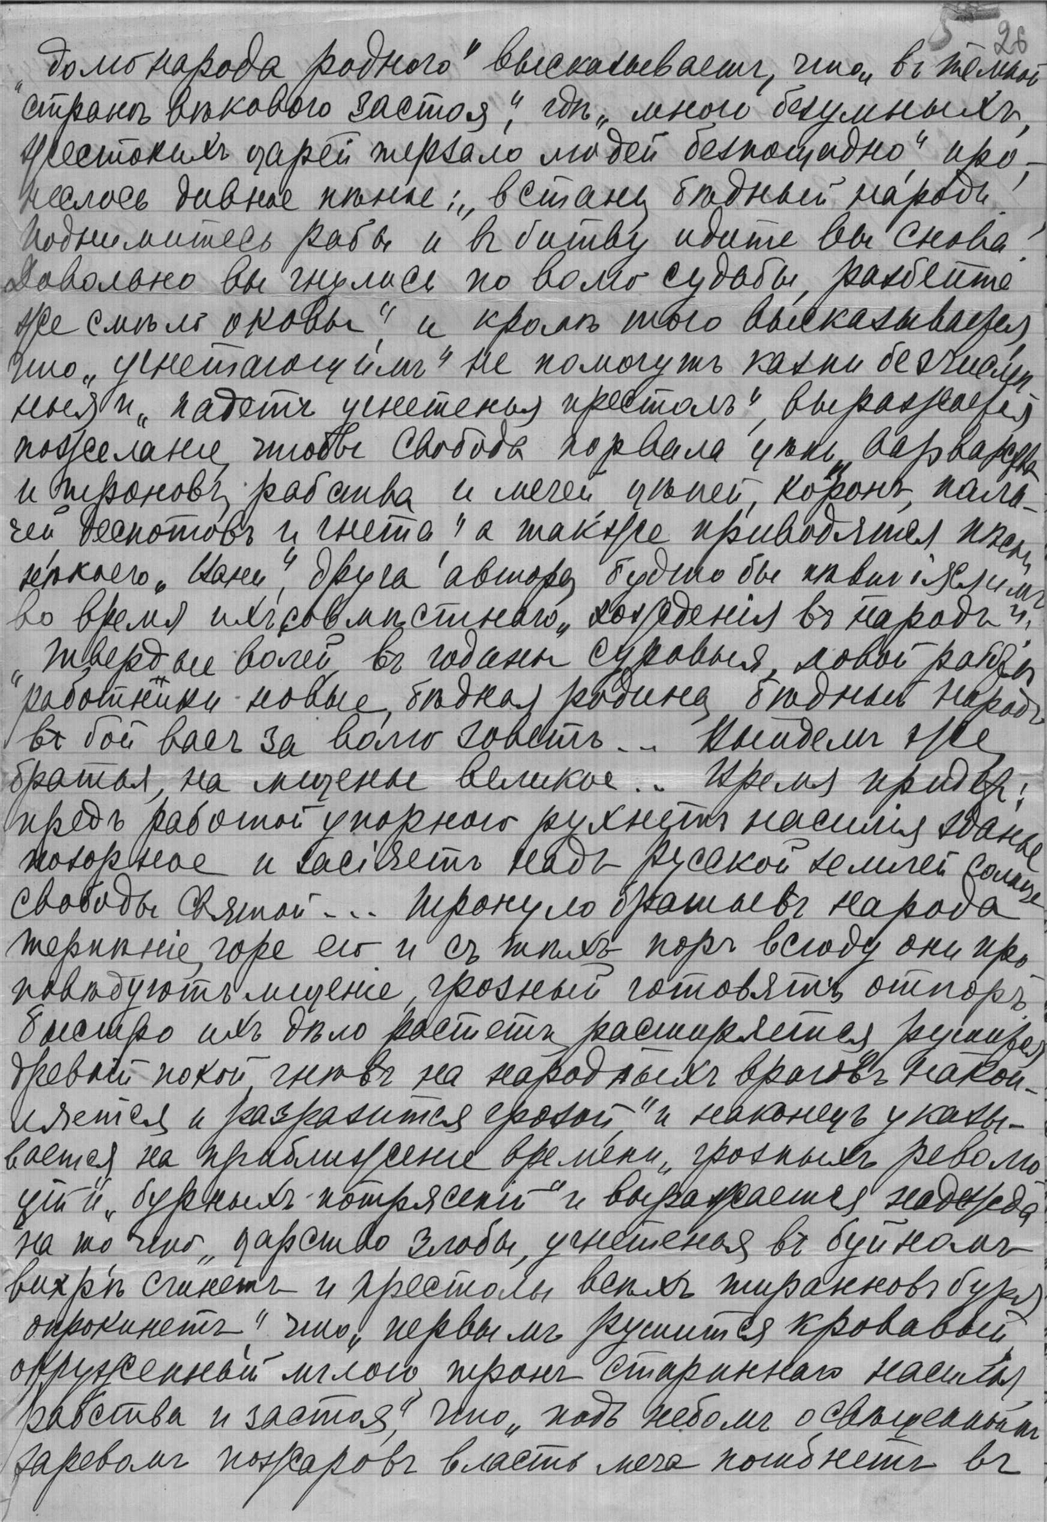 26
„домъ народа родного" высказываетъ, что „въ тёмной
странѣ вѣкового застоя", гдѣ „много безумныхъ,
жестокихъ царей терзало людей безпощадно", про-
неслось дивное пѣнье: „встань бѣдный народъ!
Поднимитесь рабы и въ битву идите вы снова!
Довольно вы гнулись по волѣ судьбы, разбейте
же смѣло оковы", и кромѣ того высказывается
что „угнетающимъ" не помогутъ казни безчислен-
ныя и „падетъ угнетенья престолъ", выражается
пожеланіе, чтобы свобода порвала цѣпи „варварства
и троновъ, рабства и мечей, цѣпей, коронъ, пала-
чей деспотовъ и гнета" а также приводятся пѣсни
нѣкоего „Вани", друга автора, будто бы пѣвшіяся имъ
во время ихъ совмѣстнаго „хожденія въ народъ":
„Твердые волей, въ годины суровыя, новой работы
работники новые, бѣдная родина, бѣдный народъ
въ бой васъ за волю зоветъ... Выйдемъ же,
братья, на мщенье великое... Время придетъ;
предъ работой упорною рухнетъ насилія зданье
позорное и засіяетъ надъ русской землей солнце
свободы святой... Тронуло братьевъ народа
терпѣніе, горе его и съ тѣхъ поръ всюду они про
повѣдуютъ мщеніе, грозный готовятъ отпоръ.
Быстро ихъ дѣло растетъ, расширяется, рушится
древній покой, гнѣвъ на народныхъ враговъ накоп-
ляется и разразится грозой", и наконецъ указы-
вается на приближеніе времени „грозныхъ револю
цій и „бурныхъ потрясеній" и выражается надежда
на то что „царство злобы, угнетенья въ буйномъ
вихрѣ сгинетъ и престолы всѣхъ тиранновъ буря
опрокинетъ" что „первымъ рушится кровавый
окруженный мглою тронъ стариннаго насилья,
рабства и застоя", что „подъ небомъ освѣщеннымъ
заревомъ пожаровъ власть меча погибнетъ въ